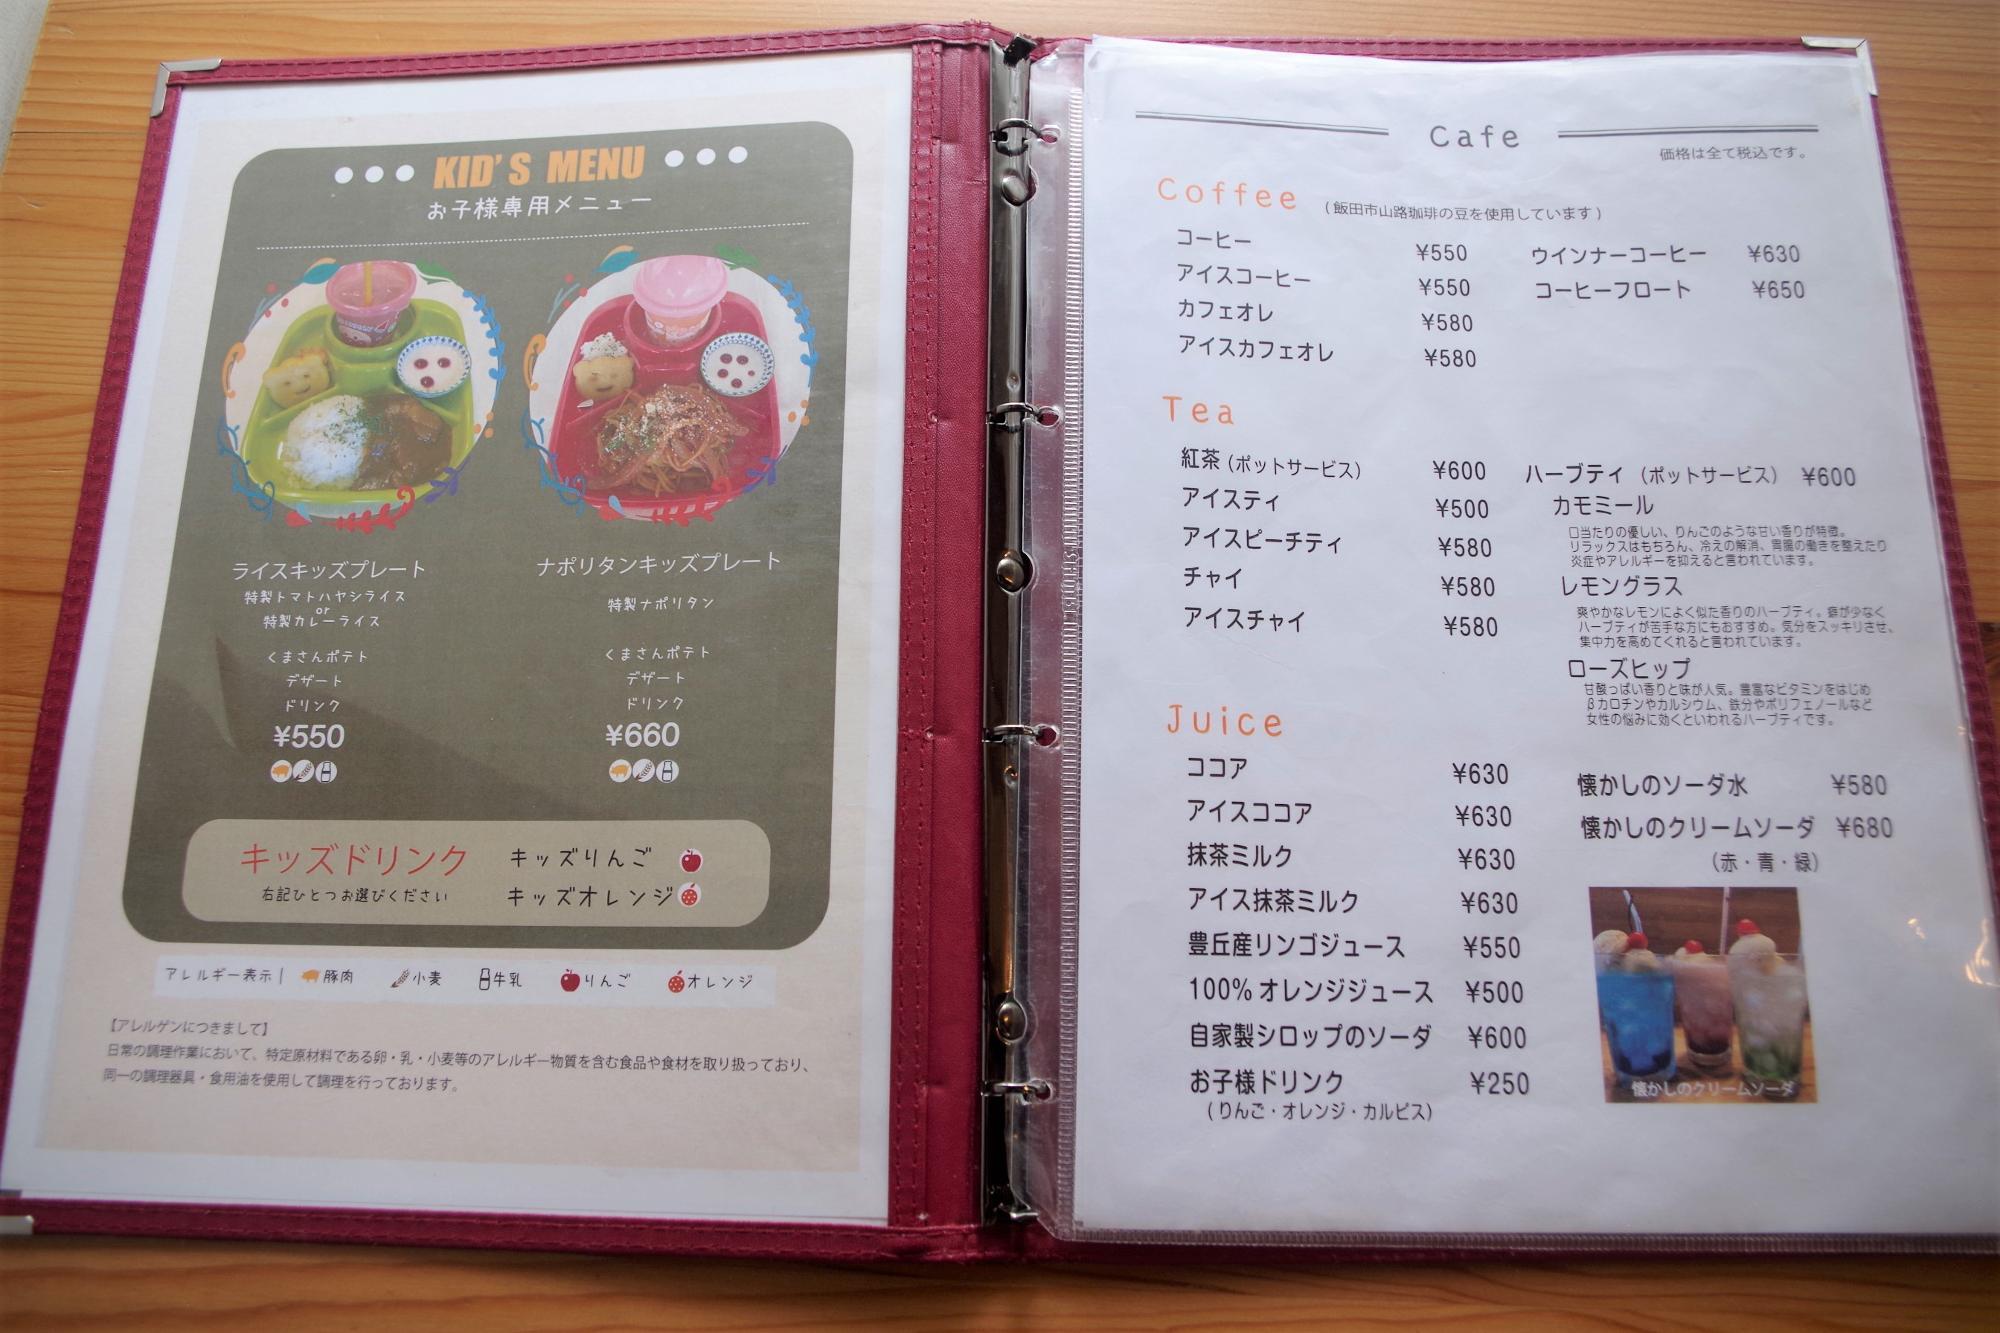 KID'S MENU
お子様専用メニュー
ライスキッズプレート
特製トマトハヤシライス
or
特製カレーライス
くまさんポテト
デザート
ドリンク
¥550
ナポリタンキッズプレート
特製ナポリタン
くまさんポテト
デザート
ドリンク
¥660
キッズドリンク
右記ひとつお選びください
キッズりんご
キッズオレンジ
アレルギー表示 | 豚肉 小麦 牛乳 りんご オレンジ
【アレルゲンにつきまして】
日常の調理作業において、特定原材料である卵・乳・小麦等のアレルギー物質を含む食品や食材を取り扱っており、
同一の調理器具・食用油を使用して調理を行っております。
Cafe
価格は全て税込です。
Coffee (飯田市山路珈琲の豆を使用しています)
コーヒー ¥550
アイスコーヒー ¥550
カフェオレ ¥580
アイスカフェオレ ¥580
ウインナーコーヒー ¥630
コーヒーフロート ¥650
Tea
紅茶(ポットサービス) ¥600
アイスティ ¥500
アイスピーチティ ¥580
チャイ ¥580
アイスチャイ ¥580
ハーブティ(ポットサービス) ¥600
カモミール
口当たりの優しい、りんごのような甘い香りが特徴。
リラックスはもちろん、冷えの解消、胃腸の働きを整えたり
炎症やアレルギーを抑えると言われています。
レモングラス
爽やかなレモンによく似た香りのハーブティ。癖が少なく
ハーブティが苦手な方にもおすすめ。気分をスッキリさせ、
集中力を高めてくれると言われています。
ローズヒップ
甘酸っぱい香りと味が人気。豊富なビタミンをはじめ
βカロチンやカルシウム、鉄分やポリフェノールなど
女性の悩みに効くといわれるハーブティです。
Juice
ココア ¥630
アイスココア ¥630
抹茶ミルク ¥630
アイス抹茶ミルク ¥630
豊丘産リンゴジュース ¥550
100%オレンジジュース ¥500
自家製シロップのソーダ ¥600
お子様ドリンク ¥250
(りんご・オレンジ・カルピス)
懐かしのソーダ水 ¥580
懐かしのクリームソーダ ¥680
(赤・青・緑)
懐かしのクリームソーダ